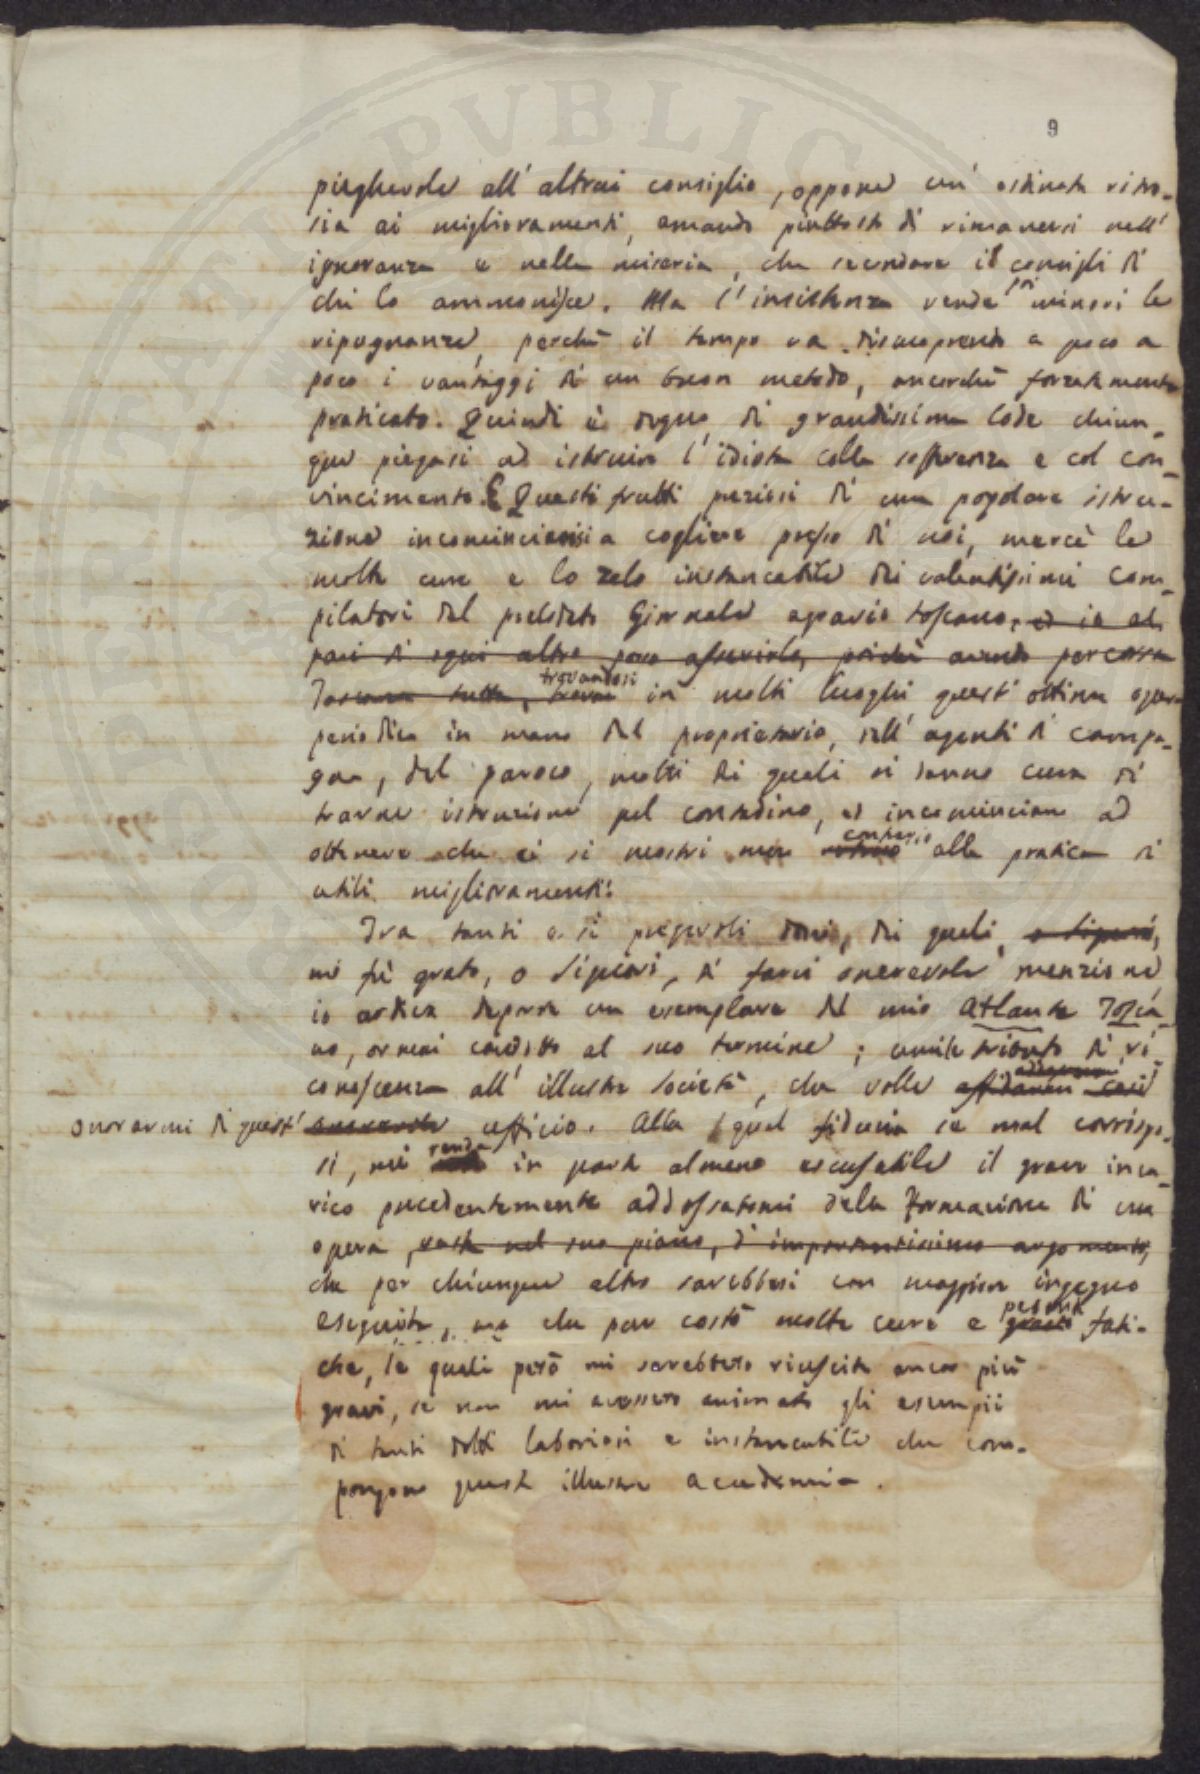 9
pieghevole all'altrui consiglio, oppone un'ostinata ritro-
sia ai miglioramenti, amando piuttosto di rimanersi nell'
ignoranza e nella miseria, che secondare i consigli di
chi lo ammonisce. Ma l'insistenza rende poi minori le
ripugnanze, perchè il tempo va discoprendo a poco a
poco i vantaggi di un buon metodo, ancorchè forzatamente
praticato. Quindi è degno di grandissima lode chiun-
que piegasi ad istruire l'idiota colla sofferenza e col con-
vincimento. E Questi frutti preziosi di una popolare istru-
zione incominciansi a cogliere presso di noi, mercè le
molte cure e lo zelo instancabile dei valentissimi com-
pilatori del prelodato Giornale agrario toscano, ed io al
pari di ogni altro posso asserirlo, poichè avendo percorsa
Toscana tutta, trovai trovandosi in molti luoghi quest'ottima opera
periodica in mano del proprietario, dell'agente di campa-
gna, del paroco, molti dei quali si danno cura di
trarne istruzione pel contadino, ed incominciano ad
ottenere che ei si mostri men contrario alla pratica di
utili miglioramenti.
Tra tanti e sì pregevoli doni, dei quali, o Signori,
mi fù grato, o Signori, di farvi onorevole menzione,
io ardica deporre un esemplare del mio Atlante Tosca-
no, ormai condotto al suo termine; umile tributo di ri-
conoscenza all'illustre società, che volle affidarmi così
onorarmi di quest' ufficio. Alla qual fiducia se mal corrispo-
si, mi renda in parte almeno escusabile il grave inca-
rico precedentemente addossatomi della formazione di una
opera, vasta nel suo piano, d'importantissimo argomento,
che per chiunque altro sarebbesi con maggior ingegno
eseguita, ma che pur costò molte cure e penose fati-
che, le quali però mi sarebbero riuscite ancor più
gravi, se non mi avessero animato gli esempii
di tanti dotti laboriosi e instancabili che com-
pongono questa illustre accademia.